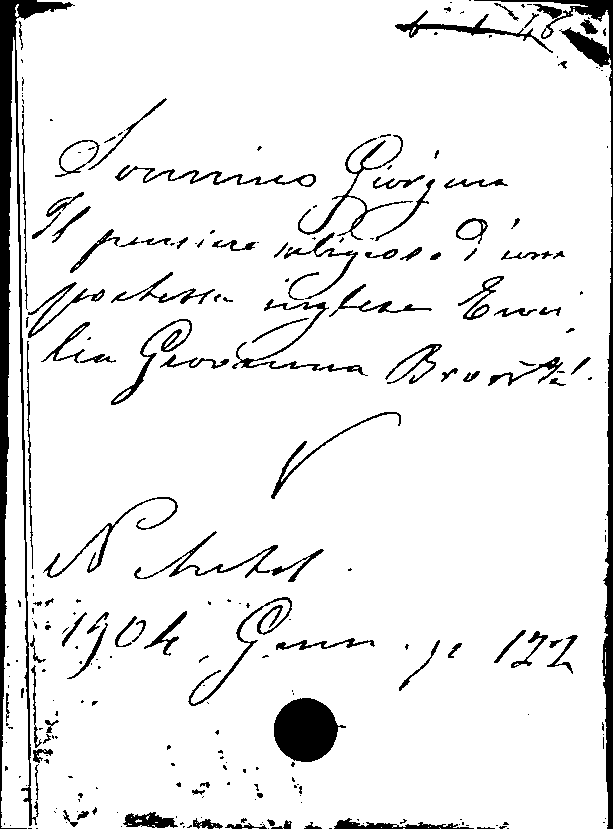 6. 1. 46
Sonnino Giorgina
Il pensiero religioso d'una
poetessa inglese Emi,
lia Giovanna Brontë.
V
N Antol.
1904. Genn. p. 122